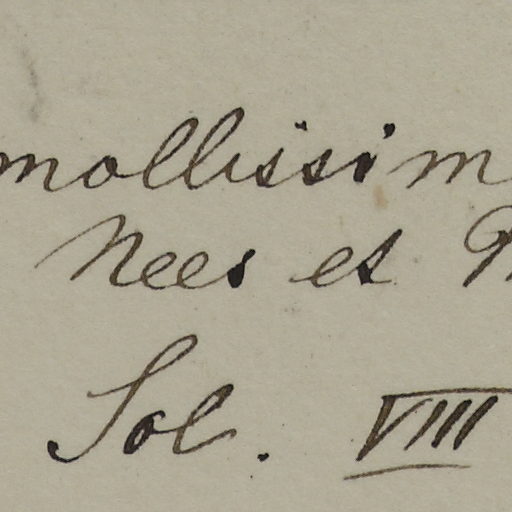 mollissim
Nees et
Sol. VIII